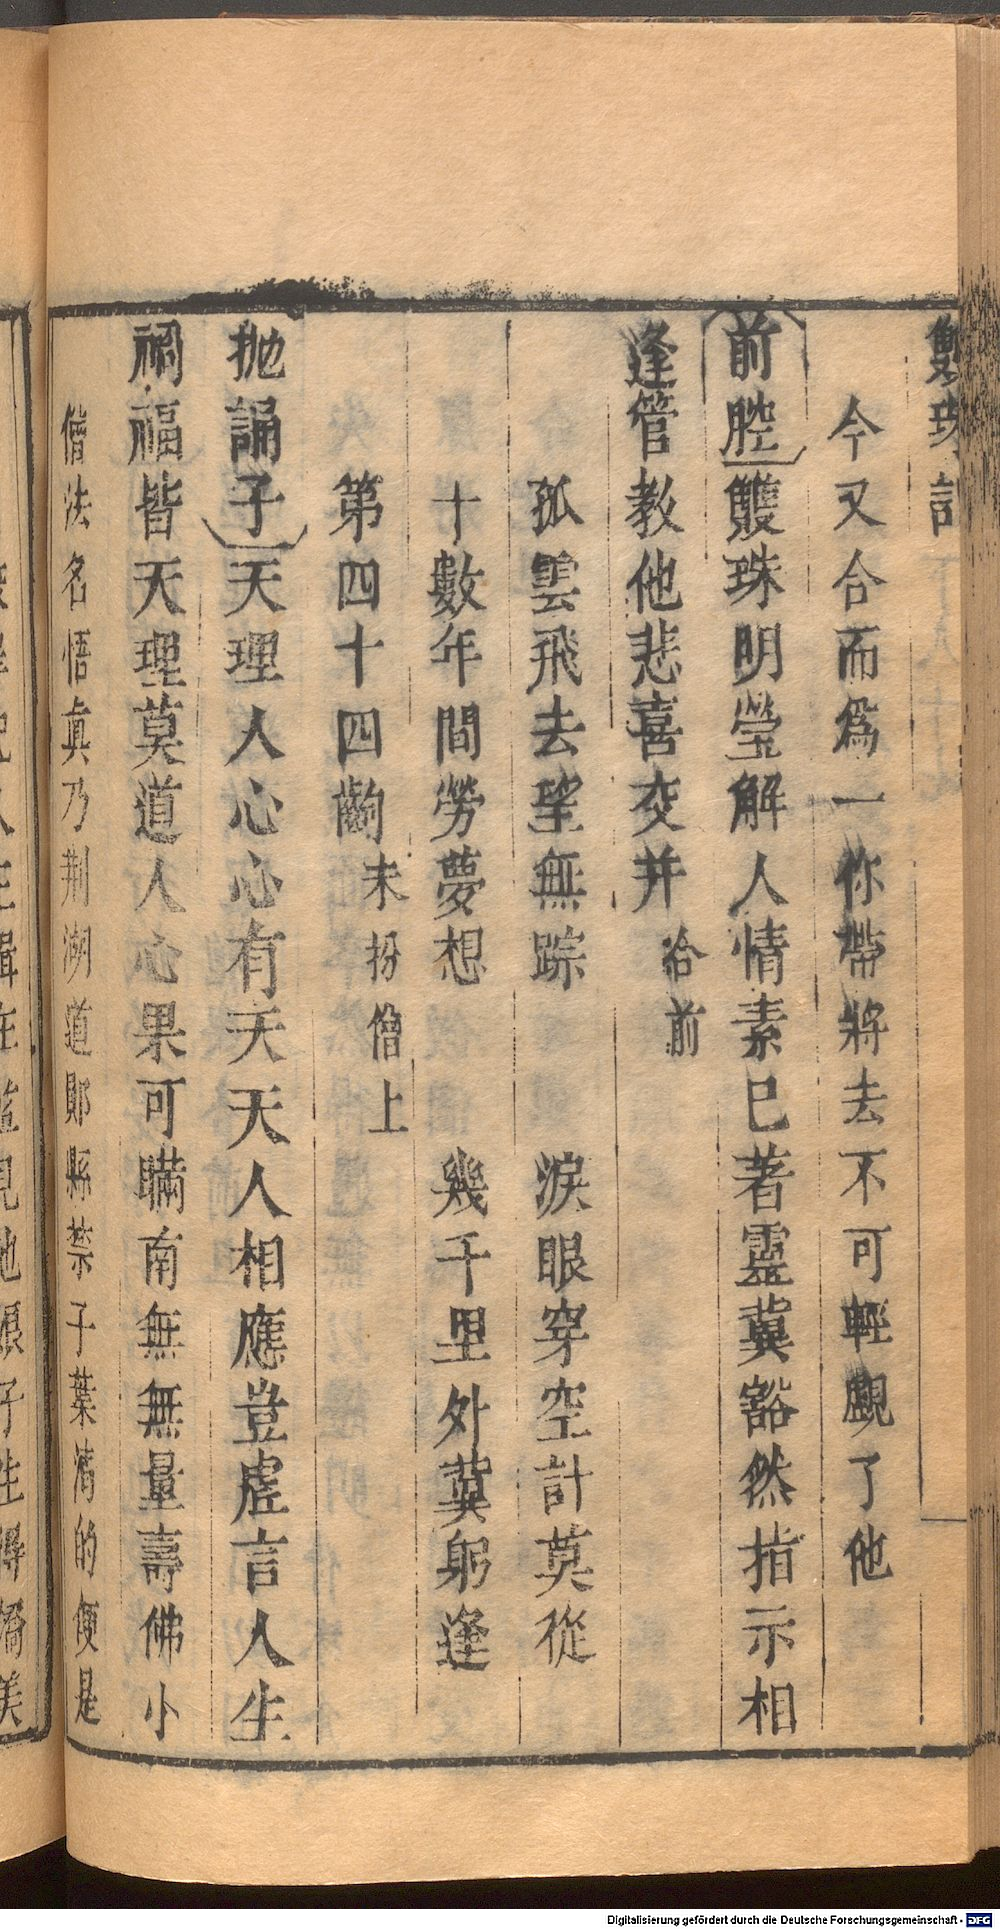 雙珠記
今又合而爲一你帶將去不可輕覷了他
前腔䨥珠明瑩解人情素已著靈冀豁然指示相
逢管教他悲喜交并 洽前
孤雲飛去望無踪 淚眼穿空計莫從
十數年間勞夢想 幾千里外冀躬逢
第四十四齣 末扮僧上
抛誦子天理人心心有天天人相應豈虗言人生
禍福皆天理莫道人心果可瞞南無無量壽佛小
僧法名悟真乃荆湖道鄖縣禁子葉清的便是
Digitalisierung gefördert durch die Deutsche Forschungsgemeinschaft - DFG